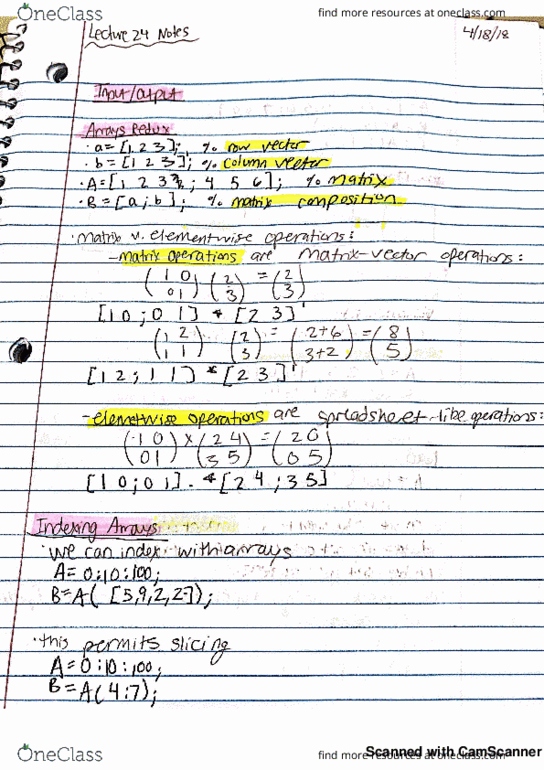 OneClass
find more resources at oneclass.com
Lecture 24 Notes
4/18/18
Input/output
Arrays Redux
· a = [1 2 3]; % row vector
· b = [1 2 3]'; % column vector
· A = [1 2 3 ; 4 5 6]; % matrix
· B = [a ; b]; % matrix composition
· matrix v. elementwise operations:
- matrix operations are matrix-vector operations:
( 1 0 ) ( 2 ) = ( 2 )
( 0 1 ) ( 3 ) ( 3 )
[1 0 ; 0 1] * [2 3]'
( 1 2 ) ( 2 ) = ( 2+6 ) = ( 8 )
( 1 1 ) ( 3 ) ( 3+2 ) ( 5 )
[1 2 ; 1 1] * [2 3]'
- elemetwise operations are spreadsheet-like operations:
( 1 0 ) x ( 2 4 ) = ( 2 0 )
( 0 1 ) ( 3 5 ) ( 0 5 )
[1 0 ; 0 1] . * [2 4 ; 3 5]
Indexing Arrays
· we can index with arrays
A = 0:10:100;
B = A( [5,9,2,2]);
· this permits slicing
A = 0:10:100;
B = A(4:7);
OneClass
find more resources at oneclass.com
Scanned with CamScanner